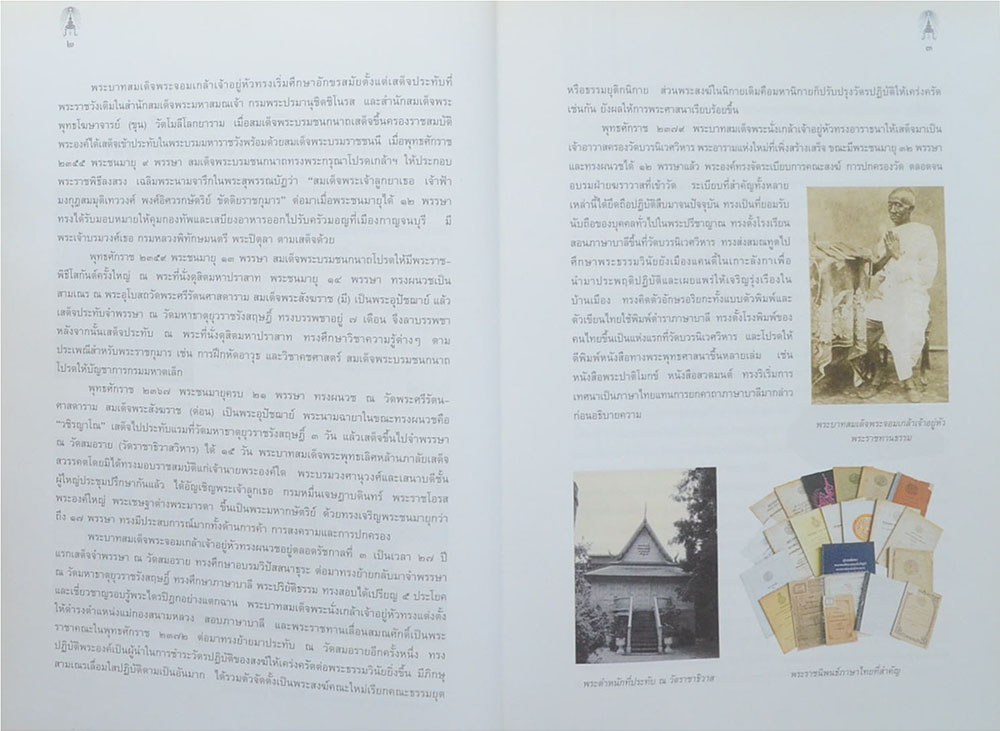 ๒
พระบาทสมเด็จพระจอมเกล้าเจ้าอยู่หัวทรงเริ่มศึกษาอักขรสมัยตั้งแต่เสด็จประทับที่
พระราชวังเดิมในสำนักสมเด็จพระมหาสมณเจ้า กรมพระปรมานุชิตชิโนรส และสำนักสมเด็จพระ
พุทธโฆษาจารย์ (ขุน) วัดโมลีโลกยาราม เมื่อสมเด็จพระบรมชนกนาถเสด็จขึ้นครองราชสมบัติ
พระองค์ได้เสด็จเข้าประทับในพระบรมมหาราชวังพร้อมด้วยสมเด็จพระบรมราชชนนี เมื่อพุทธศักราช
๒๓๕๕ พระชนมายุ ๙ พรรษา สมเด็จพระบรมชนกนาถทรงพระกรุณาโปรดเกล้าฯ ให้ประกอบ
พระราชพิธีลงสรง เฉลิมพระนามจารึกในพระสุพรรณบัฏว่า “สมเด็จพระเจ้าลูกยาเธอ เจ้าฟ้า
มงกุฎสมมุติเทววงศ์ พงศ์อิศวรกษัตริย์ ขัตติยราชกุมาร” ต่อมาเมื่อพระชนมายุได้ ๑๒ พรรษา
ทรงได้รับมอบหมายให้คุมกองทัพและเสบียงอาหารออกไปรับครัวมอญที่เมืองกาญจนบุรี มี
พระเจ้าบรมวงศ์เธอ กรมหลวงพิทักษมนตรี พระปิตุลา ตามเสด็จด้วย
พุทธศักราช ๒๓๕๙ พระชนมายุ ๑๓ พรรษา สมเด็จพระบรมชนกนาถโปรดให้มีพระราช-
พิธีโสกันต์ครั้งใหญ่ ณ พระที่นั่งดุสิตมหาปราสาท พระชนมายุ ๑๔ พรรษา ทรงผนวชเป็น
สามเณร ณ พระอุโบสถวัดพระศรีรัตนศาสดาราม สมเด็จพระสังฆราช (มี) เป็นพระอุปัชฌาย์ แล้ว
เสด็จประทับจำพรรษา ณ วัดมหาธาตุยุวราชรังสฤษฎิ์ ทรงบรรพชาอยู่ ๗ เดือน จึงลาบรรพชา
หลังจากนั้นเสด็จประทับ ณ พระที่นั่งดุสิตมหาปราสาท ทรงศึกษาวิชาความรู้ต่างๆ ตาม
ประเพณีสำหรับพระราชกุมาร เช่น การฝึกหัดอาวุธ และวิชาคชศาสตร์ สมเด็จพระบรมชนกนาถ
โปรดให้บัญชาการกรมมหาดเล็ก
พุทธศักราช ๒๓๖๗ พระชนมายุครบ ๒๑ พรรษา ทรงผนวช ณ วัดพระศรีรัตน-
ศาสดาราม สมเด็จพระสังฆราช (ด่อน) เป็นพระอุปัชฌาย์ พระนามฉายาในขณะทรงผนวชคือ
“วชิรญาโณ” เสด็จไปประทับแรมที่วัดมหาธาตุยุวราชรังสฤษฎิ์ ๓ วัน แล้วเสด็จขึ้นไปจำพรรษา
ณ วัดสมอราย (วัดราชาธิวาสวิหาร) ได้ ๑๕ วัน พระบาทสมเด็จพระพุทธเลิศหล้านภาลัยเสด็จ
สวรรคตโดยมิได้ทรงมอบราชสมบัติแก่เจ้านายพระองค์ใด พระบรมวงศานุวงศ์และเสนาบดีชั้น
ผู้ใหญ่ประชุมปรึกษากันแล้ว ได้อัญเชิญพระเจ้าลูกเธอ กรมหมื่นเจษฎาบดินทร์ พระราชโอรส
พระองค์ใหญ่ พระเชษฐาต่างพระมารดา ขึ้นเป็นพระมหากษัตริย์ ด้วยทรงเจริญพระชนมายุกว่า
ถึง ๑๗ พรรษา ทรงมีประสบการณ์มากทั้งด้านการค้า การสงครามและการปกครอง
พระบาทสมเด็จพระจอมเกล้าเจ้าอยู่หัวทรงผนวชอยู่ตลอดรัชกาลที่ ๓ เป็นเวลา ๒๗ ปี
แรกเสด็จจำพรรษา ณ วัดสมอราย ทรงศึกษาอบรมวิปัสสนาธุระ ต่อมาทรงย้ายกลับมาจำพรรษา
ณ วัดมหาธาตุยุวราชรังสฤษฎิ์ ทรงศึกษาภาษาบาลี พระปริยัติธรรม ทรงสอบได้เปรียญ ๕ ประโยค
และเชี่ยวชาญรอบรู้พระไตรปิฎกอย่างแตกฉาน พระบาทสมเด็จพระนั่งเกล้าเจ้าอยู่หัวทรงแต่งตั้ง
ให้ดำรงตำแหน่งแม่กองสนามหลวง สอบภาษาบาลี และพระราชทานเลื่อนสมณศักดิ์เป็นพระ
ราชาคณะในพุทธศักราช ๒๓๗๒ ต่อมาทรงย้ายมาประทับ ณ วัดสมอรายอีกครั้งหนึ่ง ทรง
ปฏิบัติพระองค์เป็นผู้นำในการชำระวัตรปฏิบัติของสงฆ์ให้เคร่งครัดต่อพระธรรมวินัยยิ่งขึ้น มีภิกษุ
สามเณรเลื่อมใสปฏิบัติตามเป็นอันมาก ได้รวมตัวจัดตั้งเป็นพระสงฆ์คณะใหม่เรียกคณะธรรมยุต
๓
หรือธรรมยุติกนิกาย ส่วนพระสงฆ์ในนิกายเดิมคือมหานิกายก็ปรับปรุงวัตรปฏิบัติให้เคร่งครัด
เช่นกัน ยังผลให้การพระศาสนาเรียบร้อยขึ้น
พุทธศักราช ๒๓๗๙ พระบาทสมเด็จพระนั่งเกล้าเจ้าอยู่หัวทรงอาราธนาให้เสด็จมาเป็น
เจ้าอาวาสครองวัดบวรนิเวศวิหาร พระอารามแห่งใหม่ที่เพิ่งสร้างเสร็จ ขณะมีพระชนมายุ ๓๒ พรรษา
และทรงผนวชได้ ๑๒ พรรษาแล้ว พระองค์ทรงจัดระเบียบการคณะสงฆ์ การปกครองวัด ตลอดจน
อบรมฝ่ายฆราวาสที่เข้าวัด ระเบียบที่สำคัญทั้งหลาย
เหล่านี้ได้ยึดถือปฏิบัติสืบมาจนปัจจุบัน ทรงเป็นที่ยอมรับ
นับถือของบุคคลทั่วไปในพระปรีชาญาณ ทรงตั้งโรงเรียน
สอนภาษาบาลีขึ้นที่วัดบวรนิเวศวิหาร ทรงส่งสมณทูตไป
ศึกษาพระธรรมวินัยยังเมืองแคนดี้ในเกาะลังกาเพื่อ
นำมาประพฤติปฏิบัติและเผยแพร่ให้เจริญรุ่งเรืองใน
บ้านเมือง ทรงคิดตัวอักษรอริยกะทั้งแบบตัวพิมพ์และ
ตัวเขียนไทยใช้พิมพ์ตำราภาษาบาลี ทรงตั้งโรงพิมพ์ของ
คนไทยขึ้นเป็นแห่งแรกที่วัดบวรนิเวศวิหาร และโปรดให้
ตีพิมพ์หนังสือทางพระพุทธศาสนาขึ้นหลายเล่ม เช่น
หนังสือพระปาติโมกข์ หนังสือสวดมนต์ ทรงริเริ่มการ
เทศนาเป็นภาษาไทยแทนการยกคาถาภาษาบาลีมากล่าว
ก่อนอธิบายความ
พระบาทสมเด็จพระจอมเกล้าเจ้าอยู่หัว
พระราชทานธรรม
พระตำหนักที่ประทับ ณ วัดราชาธิวาส
พระราชนิพนธ์ภาษาไทยที่สำคัญ